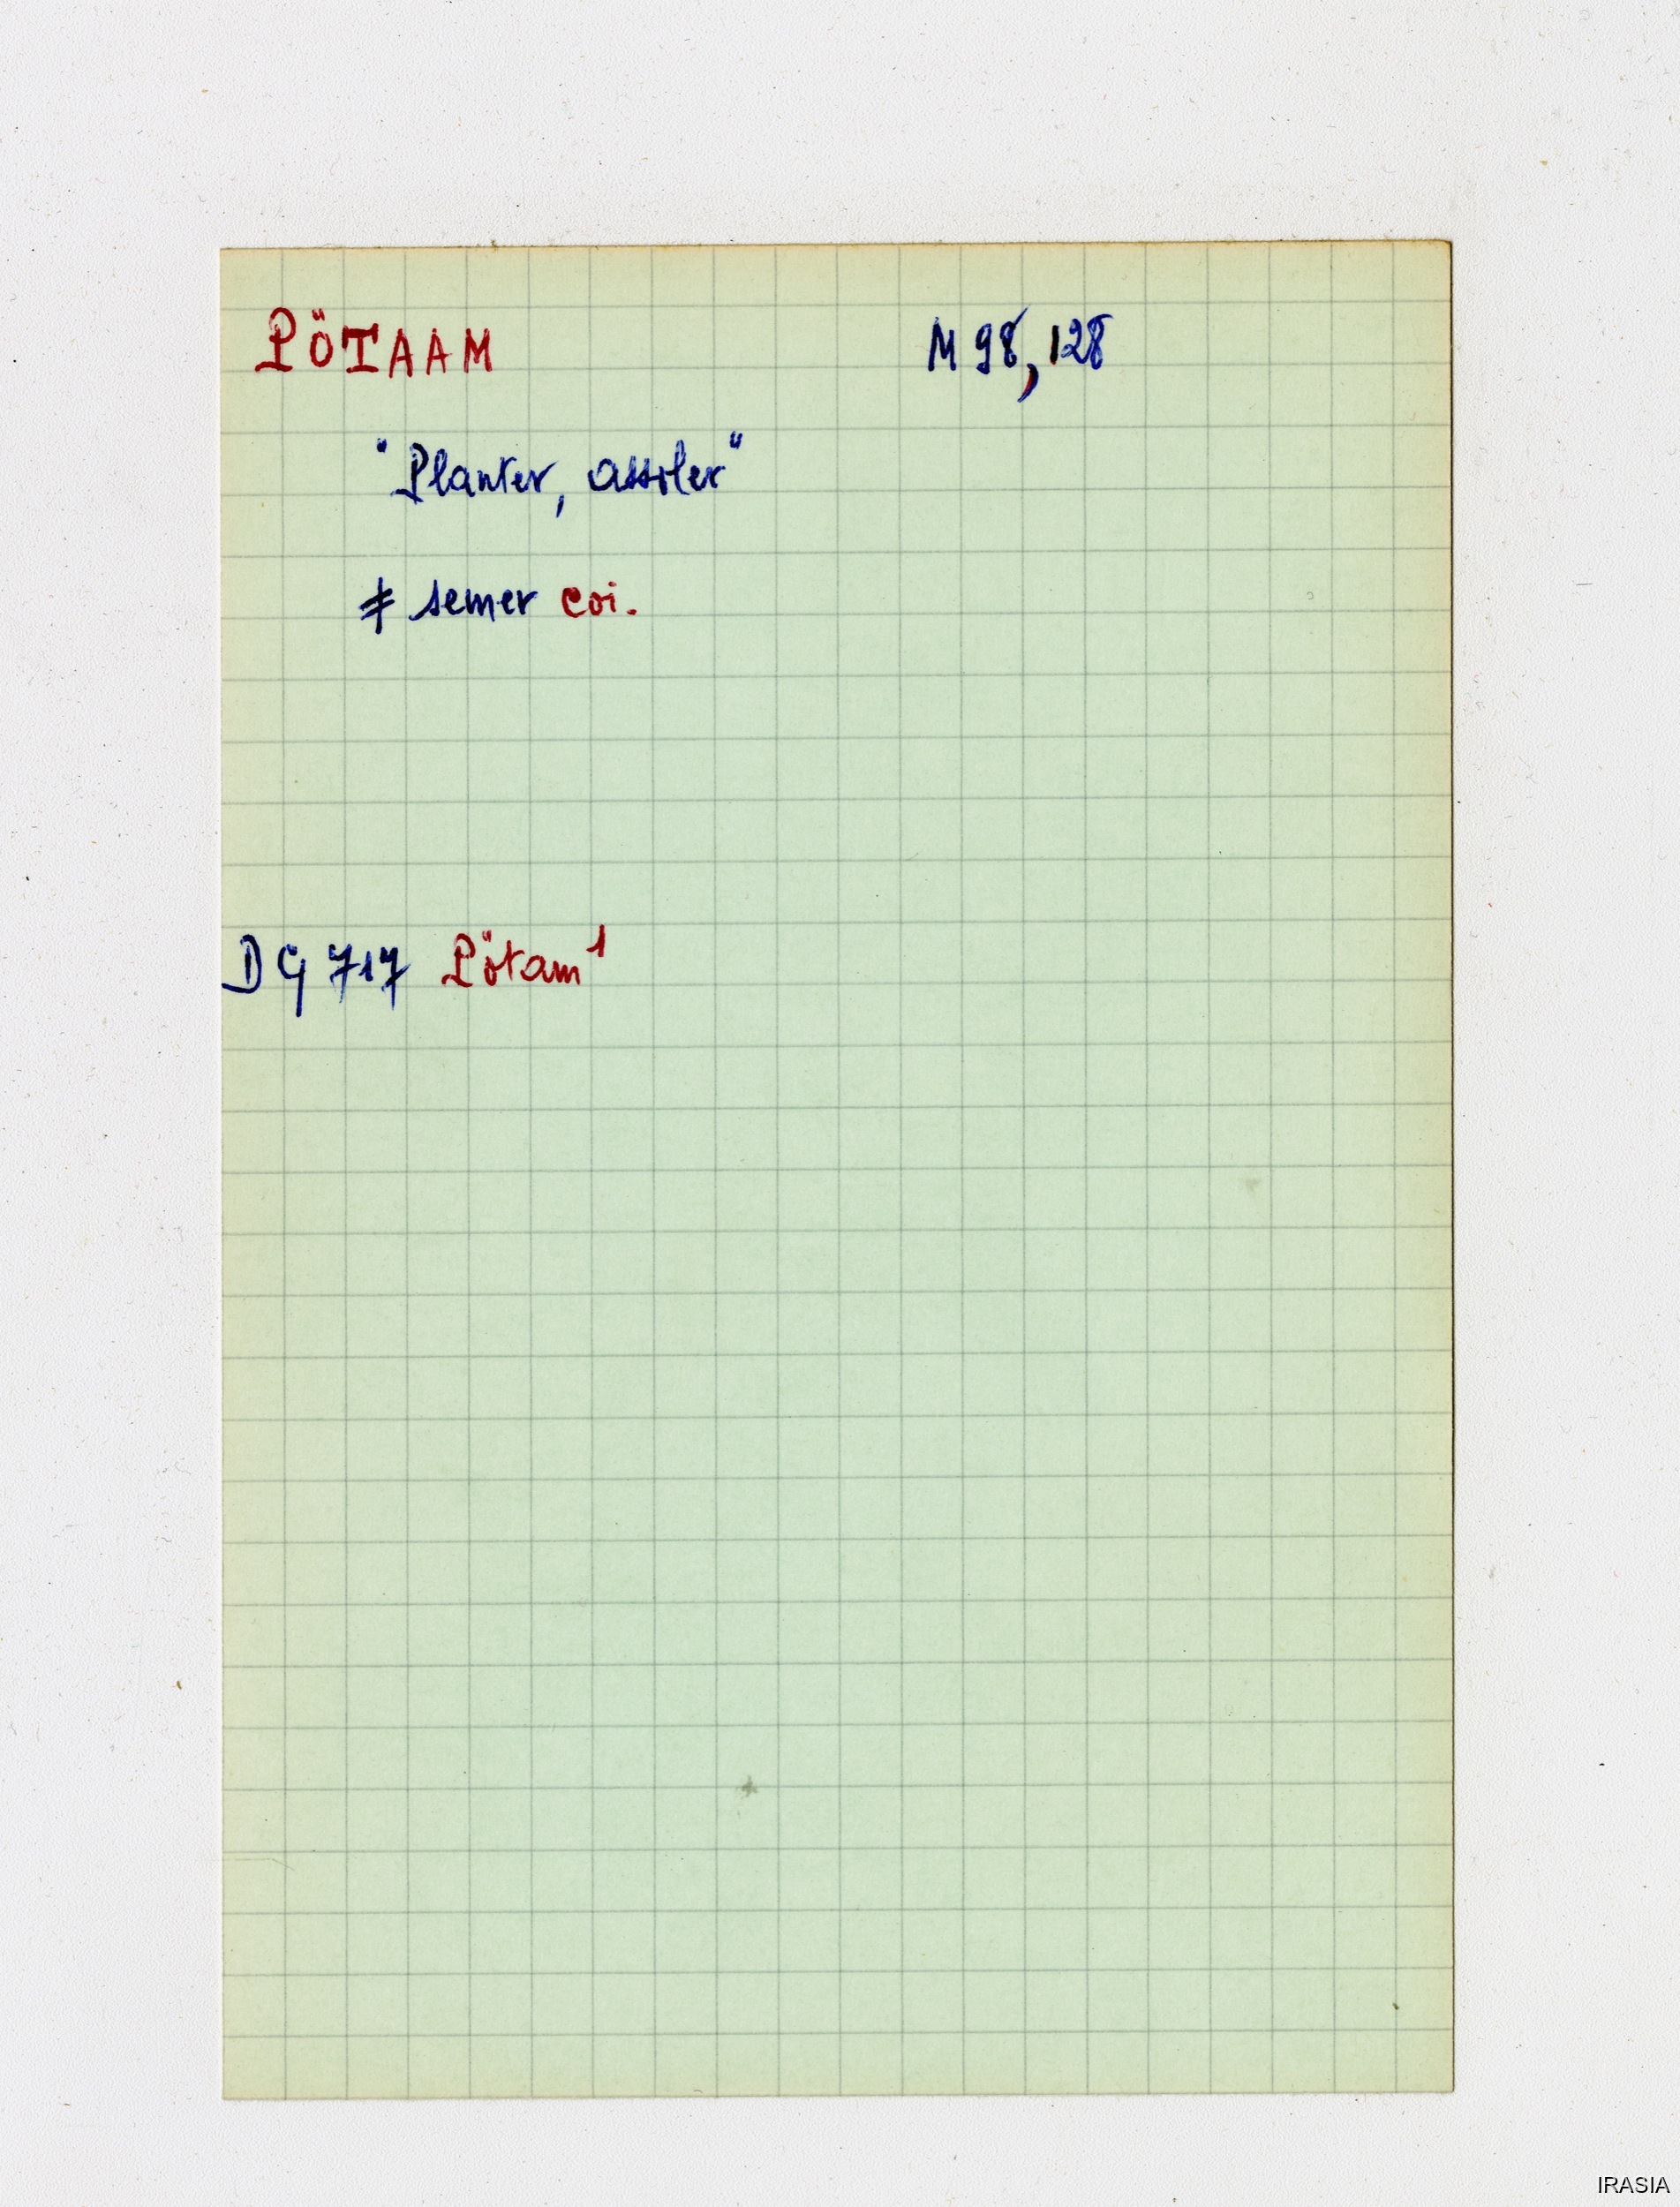 PÖTAAM M 98, 128
"Planter, assoler"
≠ semer coi.
DG 717 Pötam¹
IRASIA